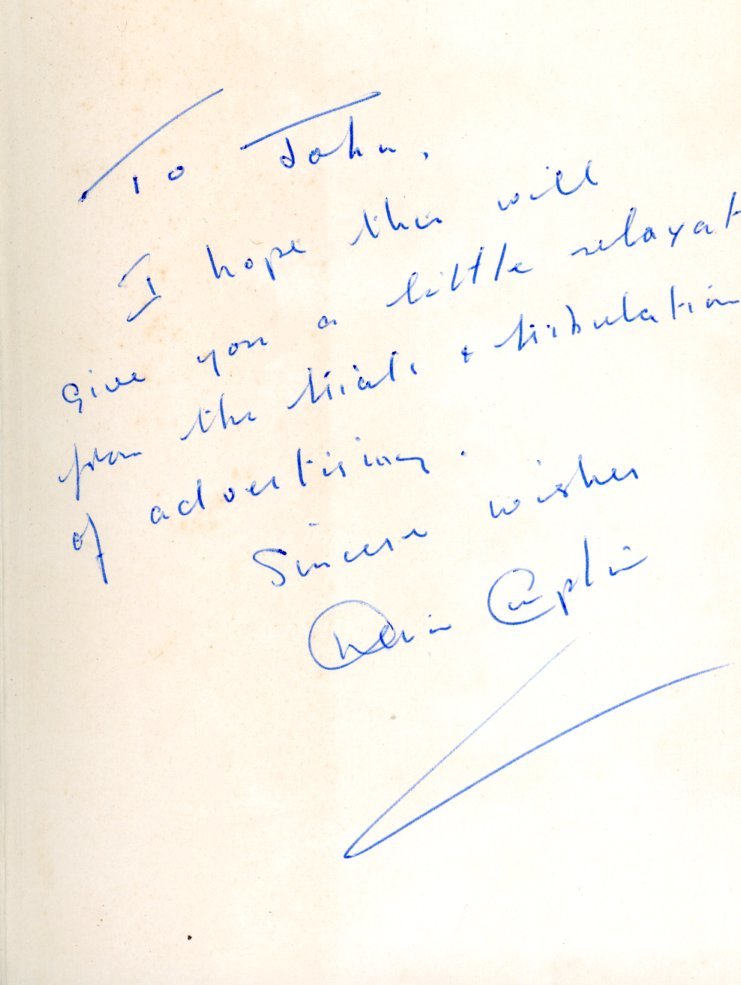 To John,
I hope this will
give you a little relaxat
from the trials + tribulation
of advertising.
Sincere wishes